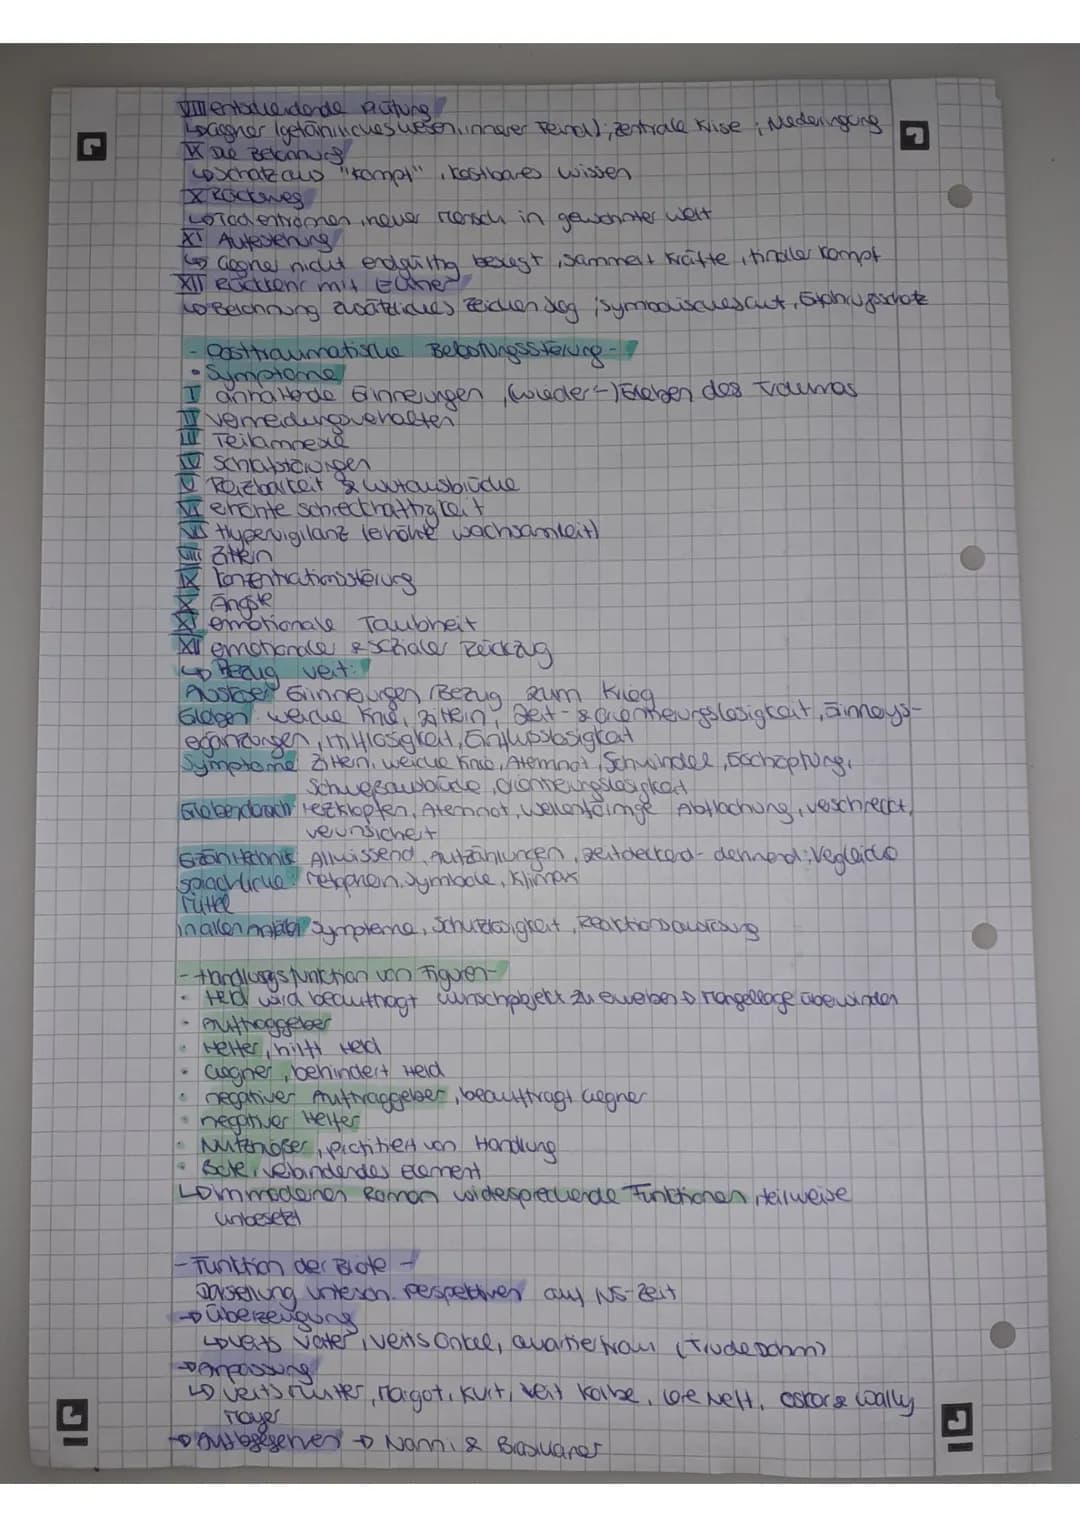 VIII entscheidende Prüfung
↳ Gegner (getän wesen, innerer Feind); zentrale Krise; Niederringung
IX Die Belohnung
↳ Schatz aus "Kampf", kostbares Wissen
X Rückweg
↳ Tod entronnen, neuer Mensch in gewohnter Welt
XI Auferstehung
↳ Gegner nicht endgültig besiegt, sammelt Kräfte, finaler Kampf
XII Rückkehr mit Elixier
↳ Belohnung zusätzliches Zeichen Sieg; symbolisches Gut, Erfahrungsschatz
- Posttraumatische Belastungsstörung -
• Symptome
I anhaltende Erinnerungen, (wieder-)Erleben des Traumas
II Vermeidungsverhalten
III Teilamnesie
IV Schlafstörungen
V Reizbarkeit & Wutausbrüche
VI erhöhte Schreckhaftigkeit
VII Hypervigilanz (erhöhte Wachsamkeit)
VIII Zittern
IX Konzentrationsstörung
X Ängste
XI emotionale Taubheit
XII emotionaler & sozialer Rückzug
↳ Bezug Veit:
Auslöser Erinnerungen, Bezug zum Krieg
Folgen: weiche Knie, zittern, Zeit- & Orientierungslosigkeit, Erinnerungs-
ergänzungen, Hilflosigkeit, Einflusslosigkeit
Symptome Zittern, weiche Knie, Atemnot, Schwindel, Erschöpfung,
Schweißausbrüche, Orientierungslosigkeit
Erleben danach Herzklopfen, Atemnot, wellenförmige Abflachung, verschreckt,
verunsichert
Erzähltechnik Allwissend, Aufzählungen, zeitdeckend-dehnend; Vergleiche
sprachliche: Metaphern, Symbole, Klimax
Mittel
in allen Symptome, Schutzlosigkeit, Reaktionsauslösung
- Handlungsfunktion von Figuren -
• Held wird beauftragt Wunschobjekt zu erwerben → Mangellage überwinden
• Auftraggeber
• Helfer, hilft Held
• Gegner, behindert Held
• negativer Auftraggeber, beauftragt Gegner
• negativer Helfer
• Nutznießer, profitiert von Handlung
• Bote, verbindendes Element
↳ im modernen Roman widersprechende Funktionen, teilweise
unbesetzt
- Funktion der Briefe -
Darstellung untersch. Perspektiven auf NS-Zeit
→ Überzeugung
↳ Veits Vater, Veits Onkel, Quartierfrau (Trude Dohm)
→ Anpassung
↳ Veits Mutter, Margot, Kurt, Veit Kolbe, Lore Neff, Oskar & Wally
Meyer
→ → Nanni & Brasilianer